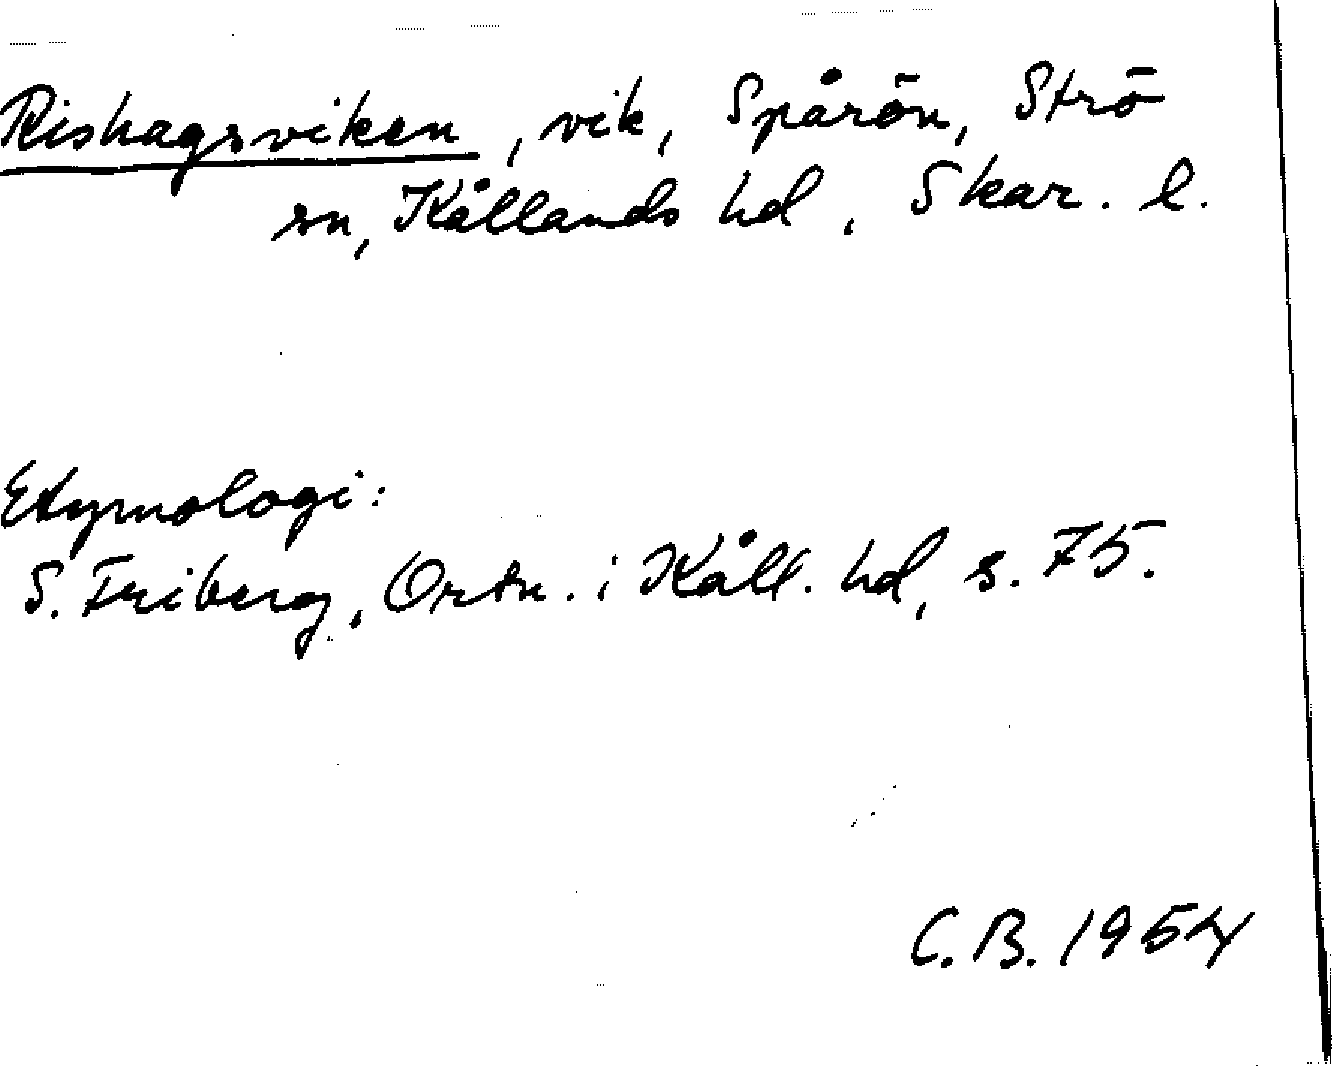 Rishagsviken, vik, Spårön, Strö
sn, Kållands hd, Skar. l.
Etymologi:
S. Friberg, Ortn. i Kåll. hd, s. 75.
C.B. 1954